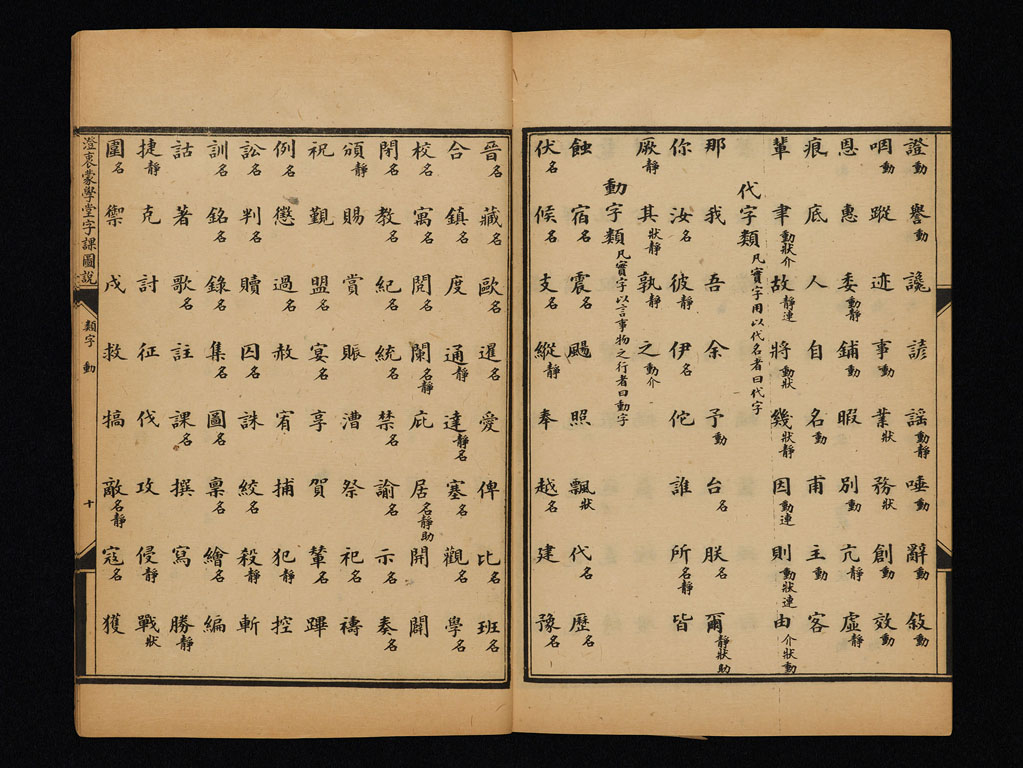 證動 譽動 讒 諺 謠動靜 唾動 辭動 敘動
咽動 蹤 迹 事動 業狀 務狀 創動 效動
恩 惠 委動靜 鋪動 暇 別動 亢靜 虛靜
痕 底 人 自 名動 甫 主動 客
輩 聿動狀介 故靜連 將動狀 幾狀靜 因動連 則動狀連 由介狀動
代字類凡實字用以代名者曰代字
那 我 吾 余 予動 台名 朕名 爾靜狀助
你 汝名 彼靜 伊名 佗 誰 所名靜 皆
厥靜 其狀靜 孰靜 之動介
動字類凡實字以言事物之行者曰動字
蝕 宿名 震名 颺 照 飄狀 代名 歷名
伏名 候名 支名 縱靜 奉 越名 建 豫名
晉名 藏名 歐名 暹名 愛 俾 比名 班名
合 鎮名 度 通靜 達靜名 塞名 觀名 學名
校名 寓名 閱名 闌名靜 庇 居名靜助 開 闢
閉名 教名 紀名 統名 禁名 諭名 示名 奏名
頒靜 賜 賞 賑 漕 祭 祀名 禱
祝 覲 盟名 宴名 享 賀 輦名 蹕
例名 懲 過名 赦 宥 捕 犯靜 控
訟名 判名 贖 囚名 誅 絞名 殺靜 斬
訓名 銘名 錄名 集名 圖名 稟名 繪名 編
詁 著 歌名 註 課名 撰 寫 勝靜
捷靜 克 討 征 伐 攻 侵靜 戰狀
圍名 禦 戍 救 犒 敵名靜 寇名 獲
澄衷蒙學堂字課圖說
類字 動
十